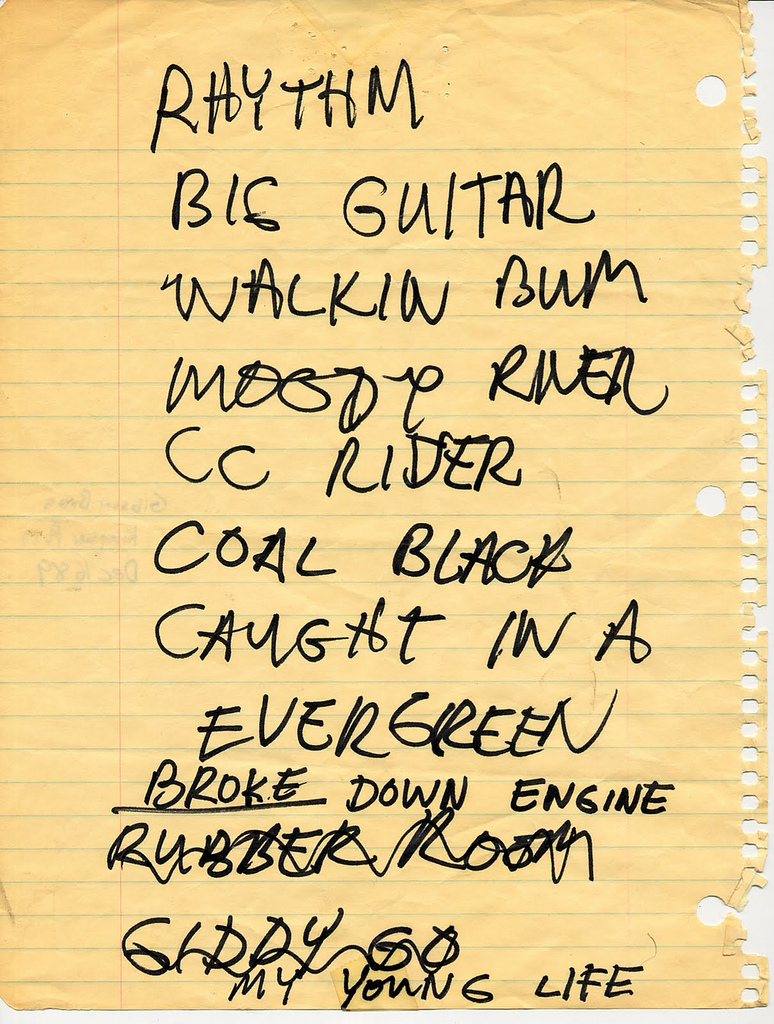 RHYTHM
BIG GUITAR
WALKIN BUM
MOODY RIVER
CC RIDER
COAL BLACK
CAUGHT IN A
EVERGREEN
BROKE DOWN ENGINE
RUBBER ROOM
GIDDY GO
MY YOUNG LIFE